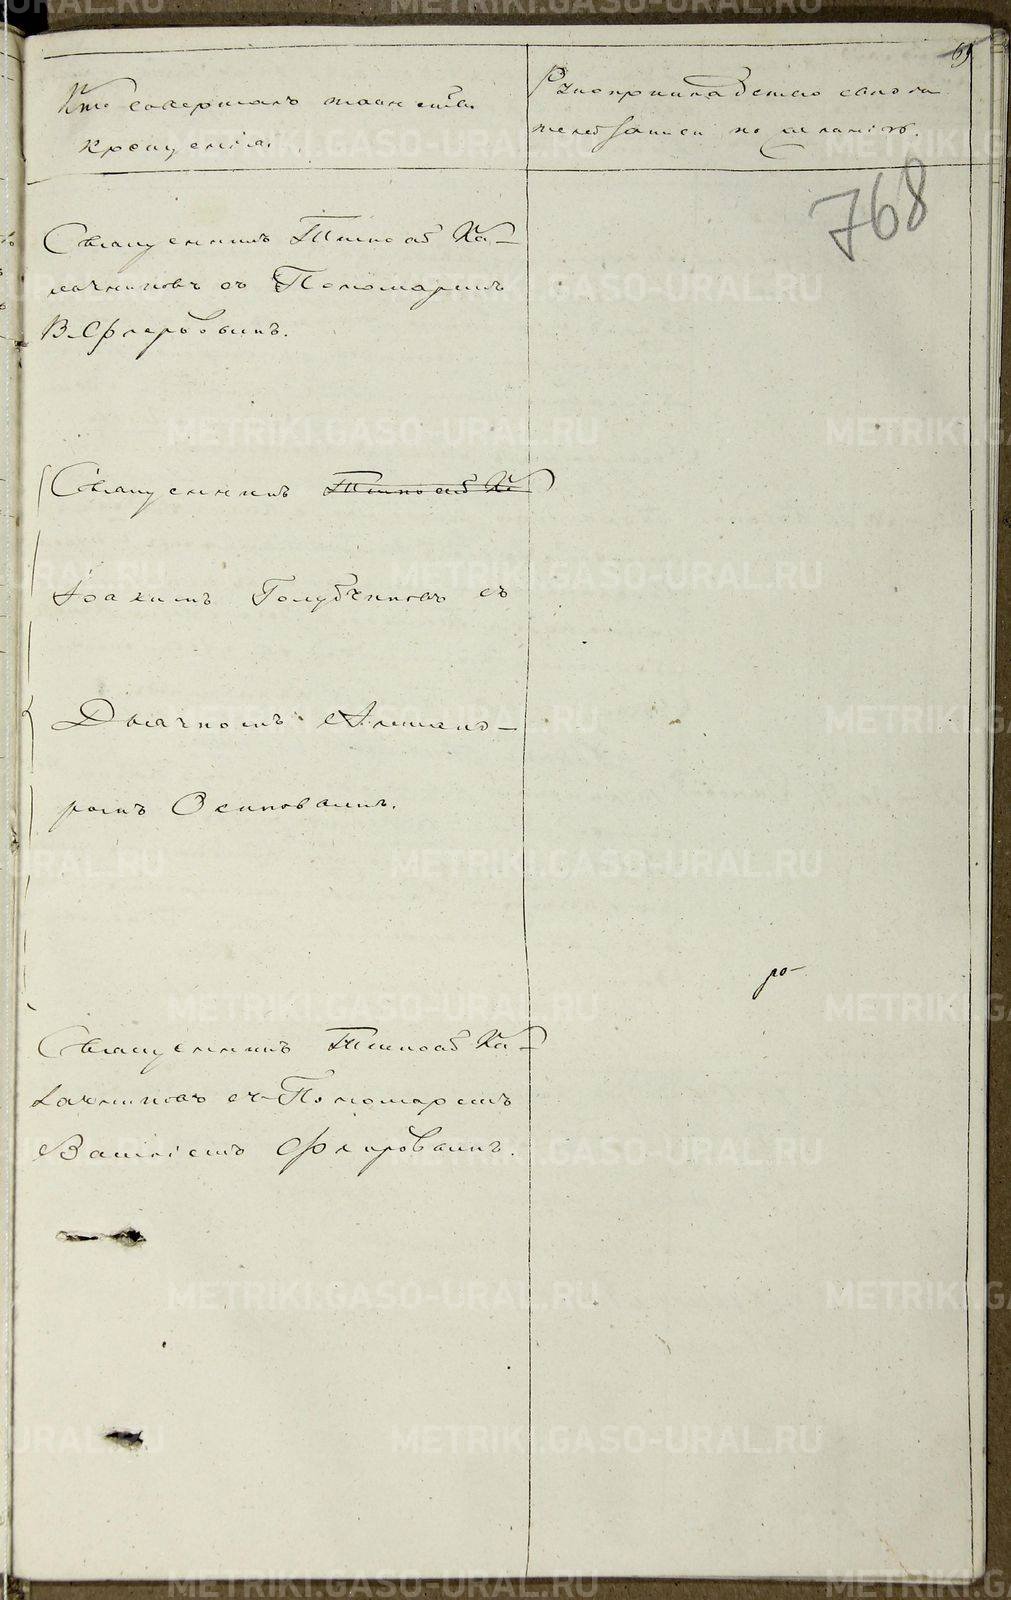 69
Кто совершалъ таинство
крещенія.
Рукоприкладство свидѣ
телей записи по желанію.
768
Священникъ Тимоѳей Ка-
лачниковъ съ Пономаремъ
В. Флеровымъ.
Священникъ Тимоѳей Ка
Іоакимъ Голубчиковъ съ
Дьячкомъ Александ-
ромъ Осиповымъ.
Священникъ Тимоѳей Ка-
лачниковъ съ Пономаремъ
Василіемъ Флеровымъ.
METRIKI.GASO-URAL.RU